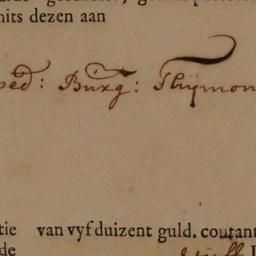 mits dezen aan
ped: Burg: Thijmon
tie van vyf duizent guld. coutant
de